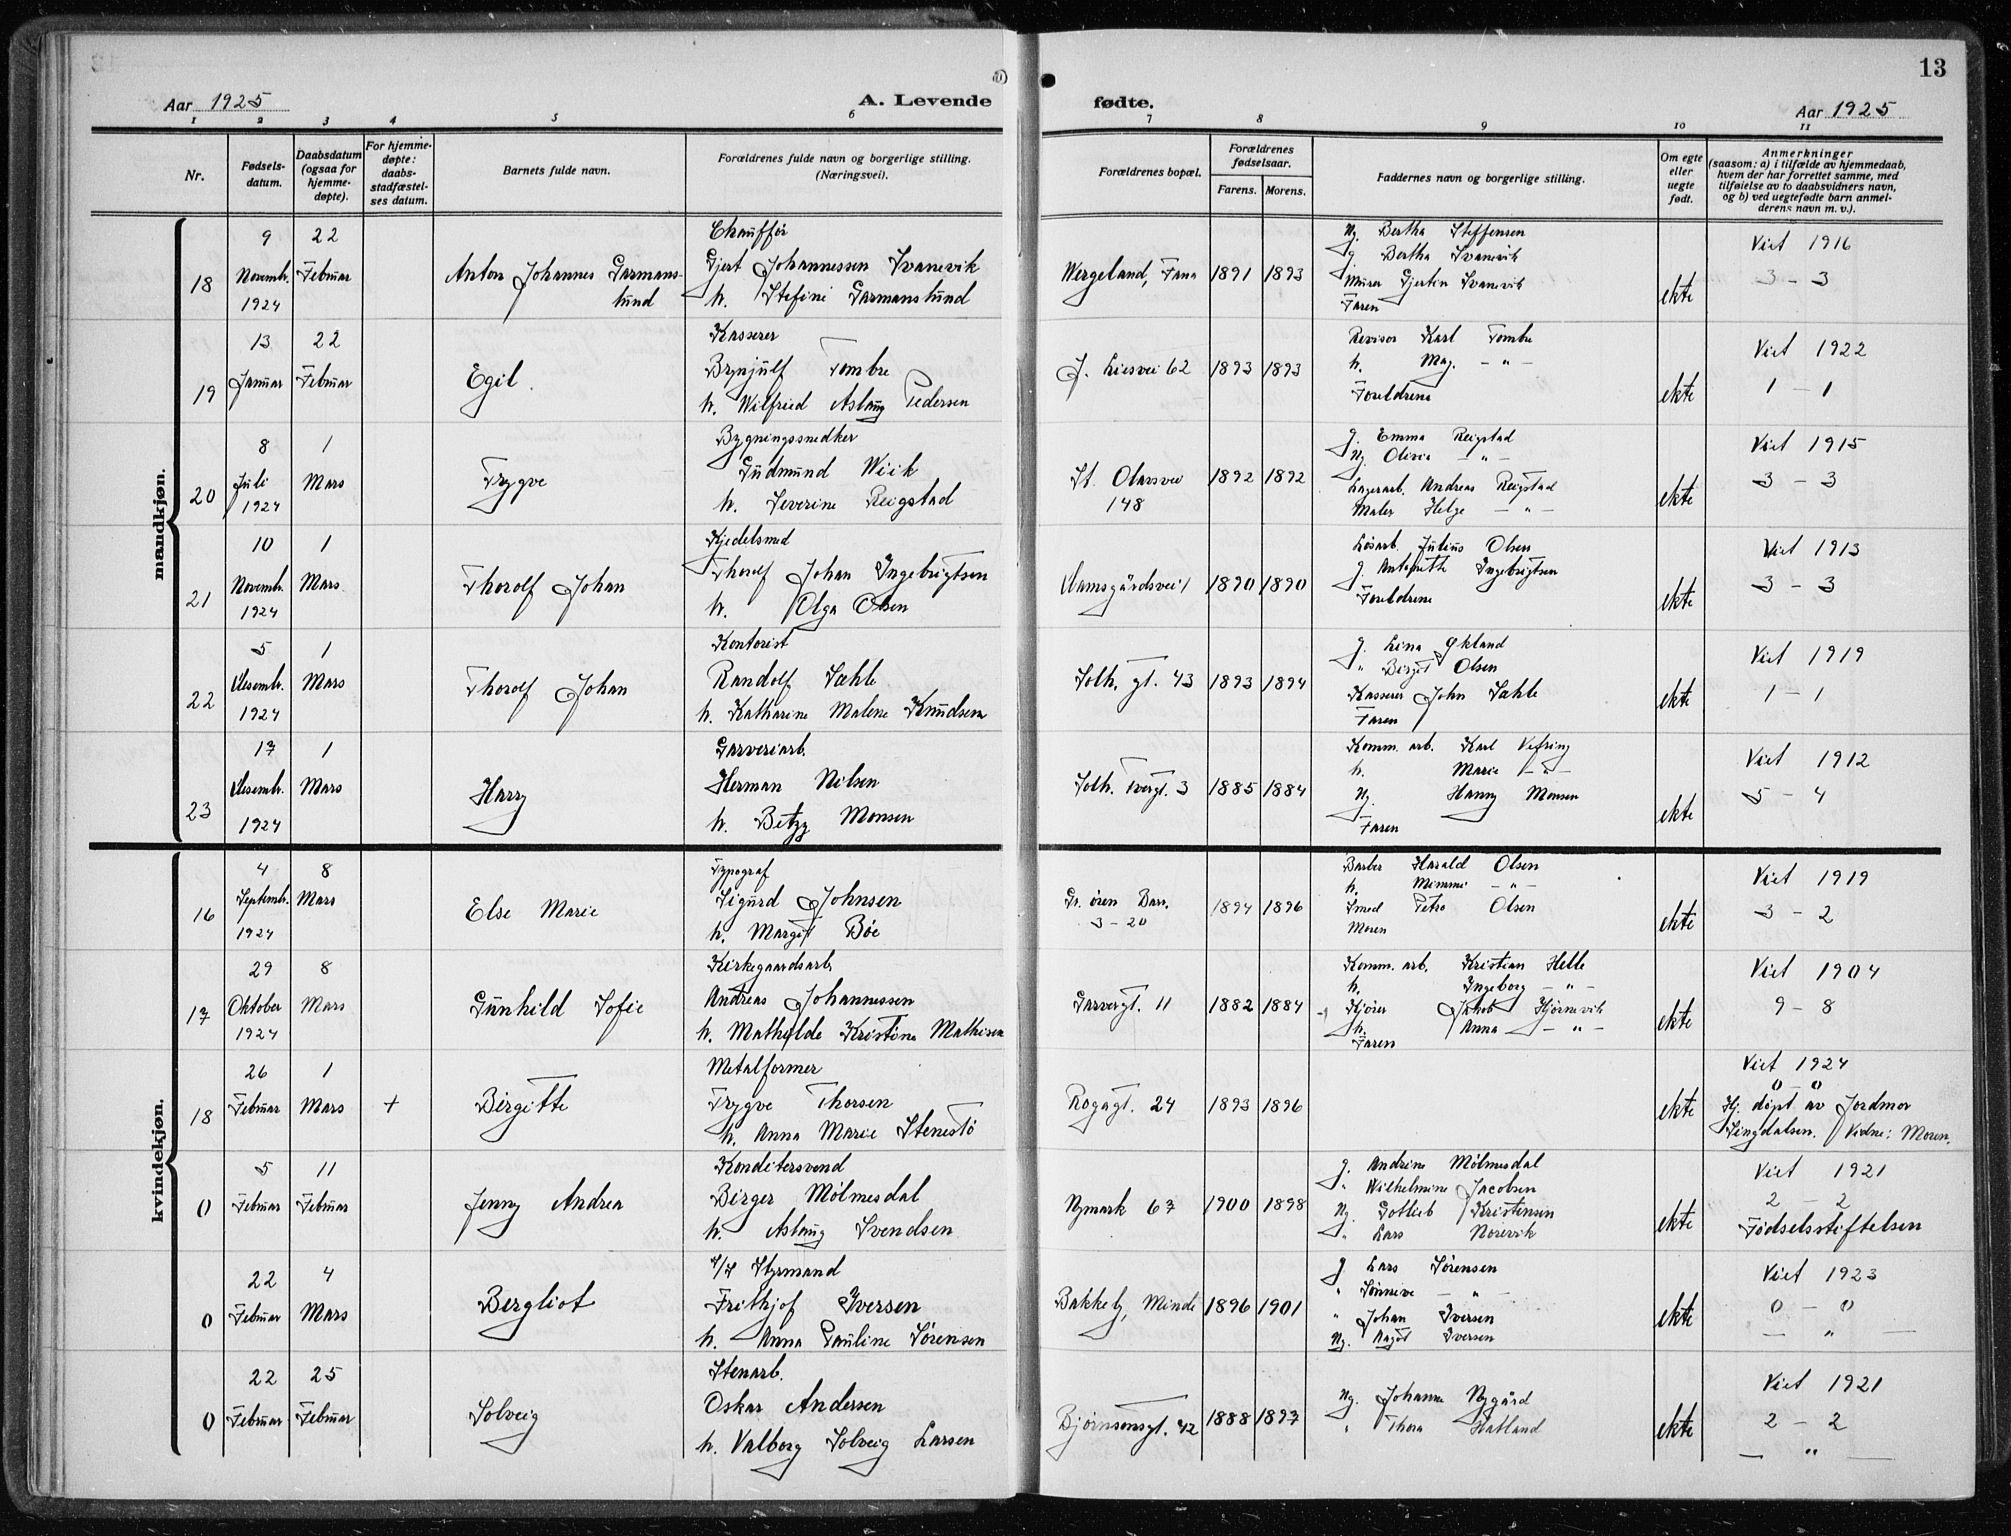 13
Aar 1925 A. Levende fødte. Aar 1925
1 2 3 4 5 6 7 8 9 10 11
Nr.
Fødsels-
datum.
Daabsdatum
(ogsaa for
hjemme-
døpte).
For hjemme-
døpte:
daabs-
stadfæstel-
ses datum.
Barnets fulde navn.
Forældrenes fulde navn og borgerlige stilling.
(Næringsvei).
Forældrenes bopæl.
Forældrenes
fødselsaar.
Farens. Morens.
Faddernes navn og borgerlige stilling.
Om egte
eller
uegte
født.
Anmerkninger
(saasom: a) i tilfælde av hjemmedaab,
hvem der har forrettet samme, med
tilføielse av to daabsvidners navn,
og b) ved uegtefødte barn anmel-
derens navn m. v.).
mandkjøn.
18
9
Novembr.
1924
22
Februar
Anton Johannes Garmans-
lund
Chauffør
Gjert Johannessen Svanevik
h. Stefine Garmanslund
Wergeland, Fana
1891 1893
Ug. Bertha Steffensen
g. Bertha Svanevik
Murer Gjertin Svanevik
Faren
ekte
Viet 1916
3 - 3
19
13
Januar
22
Februar
Egil.
Kasserer
Brynjulf Tombre
h. Wilfried Aslaug Pedersen
J. Liesvei 62
1893 1893
Revisor Karl Tombre
h. Mag. - " -
Foreldrene
ekte
Viet 1922
1 - 1
20
8
Juli
1924
1
Mars
Trygve
Bygningssnedker
Gudmund Wiik
h. Severine Reigstad
St. Olavsvei
148
1892 1892
g. Emma Reigstad
Ug. Olivia - " -
Lagerarb. Andreas Reigstad
Maler Helge - " -
ekte
Viet 1915
3 - 3
21
10
Novembr.
1924
1
Mars
Thorolf Johan
Kjedelsmed
Thorolf Johan Ingebrigtsen
h. Olga Olsen
Damsgårdsvei 1
1890 1890
Løsarb. Julius Olsen
g. Antonette Ingebrigtsen
Foreldrene
ekte
Viet 1913
3 - 3
22
5
Desembr.
1924
1
Mars
Thorolf Johan
Kontorist
Randolf Sæhle
h. Katharine Malene Knudsen
Solh. gt. 43
1893 1894
g. Lina Økland
" Birgit Olsen
Kasserer John Sæhle
Faren
ekte
Viet 1919
1 - 1
23
17
Desembr.
1924
1
Mars
Harry
Garveriarb.
Herman Nilsen
h. Betzy Monsen
Solh. Tvergt. 3
1885 1884
Komm. arb. Karl Vefring
h. Marie - " -
Ug. Hanny Monsen
Faren
ekte
Viet 1912
5 - 4
kvindekjøn.
16
4
Septembr.
1924
8
Mars
Else Marie
Typograf
Sigurd Johnsen
h. Margit Bøe
Gr. ören Barr.
3 - 20
1894 1896
Barber Harald Olsen
h. Mimmi - " -
Smed Petro Olsen
Moren
ekte
Viet 1919
3 - 2
17
29
Oktober
1924
8
Mars
Gunhild Sofie
Kirkegaardsarb.
Andreas Johannessen
h. Mathilde Kristine Mathisen
Garvergt. 11
1882 1884
Komm. arb. Kristian Helle
h. Ingeborg - " -
Kjører Jakob Hjørnevik
h. Anna - " -
Faren
ekte
Viet 1904
9 - 8
18
26
Februar
1
Mars
+
Birgitte
Metalformer
Trygve Thorsen
h. Anna Marie Stenestö
Rogagt. 24
1893 1896
ekte
Viet 1924
0 - 0
Hj. døpt av Jordmor
Singdalsen. Vidne: Moren.
0
5
Februar
11
Februar
Jenny Andrea
Konditersvend
Birger Mølmesdal
h. Aslaug Svendsen
Nymark 67
1900 1898
g. Andrine Mølmesdal
" Wilhelmine Jacobsen
Ug. Gotlieb Kristensen
" Lars Norevik
ekte
Viet 1921
2 - 2
Fødselsstiftelsen
0
22
Februar
4
Mars
Bergliot
Styrmand
Frithjof Iversen
h. Anna Pauline Sørensen
Bakkely, Minde
1896 1901
g. Lars Sørensen
" Sønneve - " -
" Johan Iversen
Ug. Aagot Iversen
ekte
Viet 1923
0 - 0
- " -
0
22
Februar
25
Februar
Solveig
Stenarb.
Oskar Andersen
h. Valborg Solveig Larsen
Bjørnsonsgt. 42
1888 1897
Ug. Johanne Nygård
" Thora Hatland
ekte
Viet 1921
2 - 2
- " -